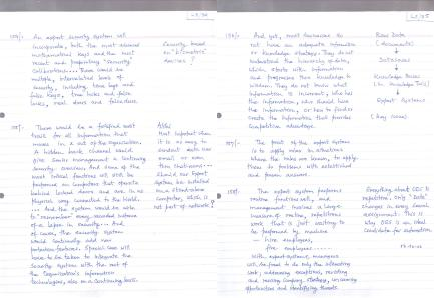 An expert security system will
incorporate, both the most advanced
mathematical keys and the most
recent and proprietary "security"
There would be
multiple, interrelated levels of
security, including true keys and
false keys, true locks and false
locks, real doors and false doors.
Security based
on "biometric"
devices ?
There would be a fortified
for all information that
moves in & out of the organization.
A hidden back channel would
give senior management a continuing
Security overview. And some of the
most critical functions will still be
performed on computers that operate
behind locked doors and are in no
physical way connected to the world.
... And the system would be able
to "remember" every recorded instance
of a lapse in security... And
of course, the security system
would continually add new
features. Special care will
have to be taken to integrate the
Security system with the rest of
the Organization's information
technologies, also on a continuing basis.
that important when
it is so easy to
email or even
Should our Expert
System be installed
on a stand-alone
Computer, which is
not part of network ?
And yet, most businesses do
not have an adequate information
or knowledge strategy. They do not
understand the hierarchy of data,
which starts with information
and progresses thru knowledge to
wisdom. They do not know what
information is important, who has
the information, who should have
the information, or how to find or
create the information that provides
competitive advantage.
Raw Data
(documents)
Databases
Knowledge Bases
Expert Systems
The point of the expert system
is to apply rules in situations
where the rules are known, to apply
them to problems with established
and known answers.
The expert system performs
routine functions well, and
management involves a large
measure of routine, repetitious
work that is just waiting to
be performed by machine
- hire employees,
fire employees
With expert systems, managers
will be freed to do only the interesting
work; addressing exceptions, revisiting
and revising company strategy, uncovering
opportunities and identifying threats.
Everything about
repetitious. Only "Data"
changes in every search
assignment. This is
why it is an ideal
candidate for automation